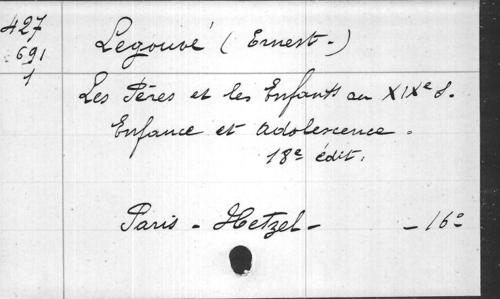 427
691
1
Legouvé (Ernest-)
Les Pères et les Enfants au XIXe s.
Enfance et adolescence.
18e édit.
Paris - Hetzel - - 16°